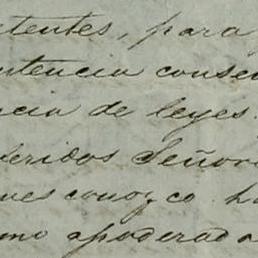 tentes, para
ntencia conse
ncia de leyes
feridos Señor
nes conozco h
mo apoderado